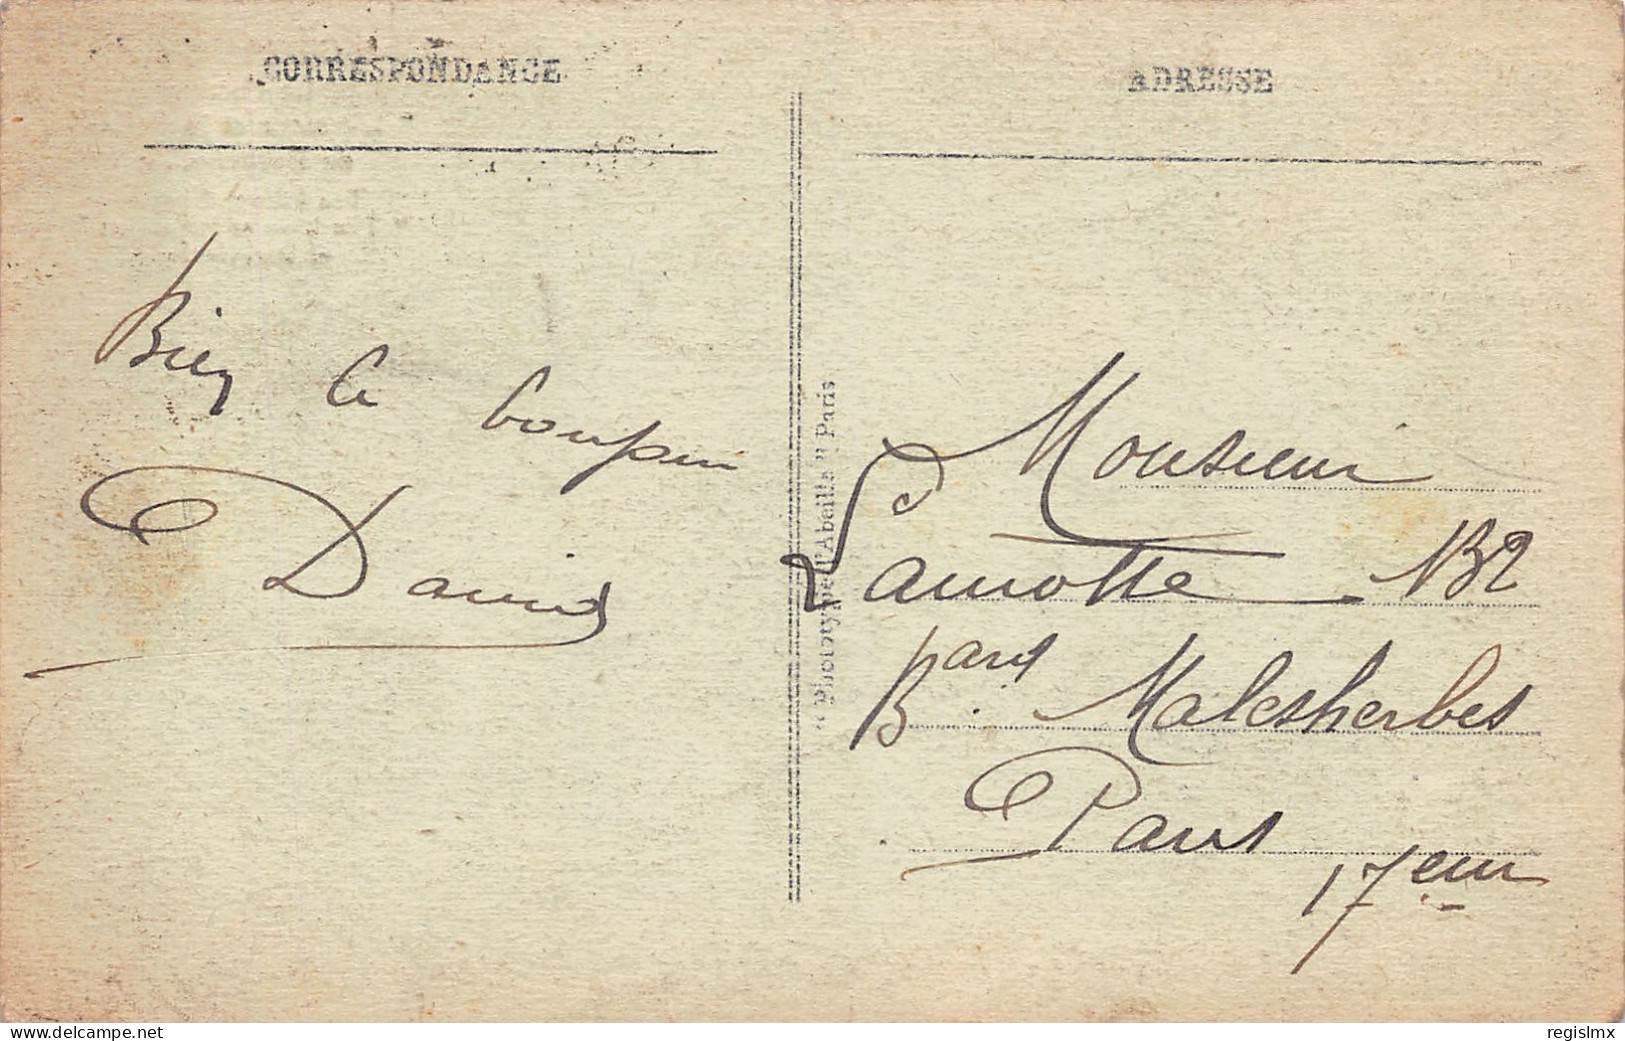 CORRESPONDANCE
ADRESSE
Bien le
David
"Phototypie l'Abeille" Paris
Monsieur
Lamotte 132
Bard. Malesherbes
Paris
17em
delcampe.net
regislmx